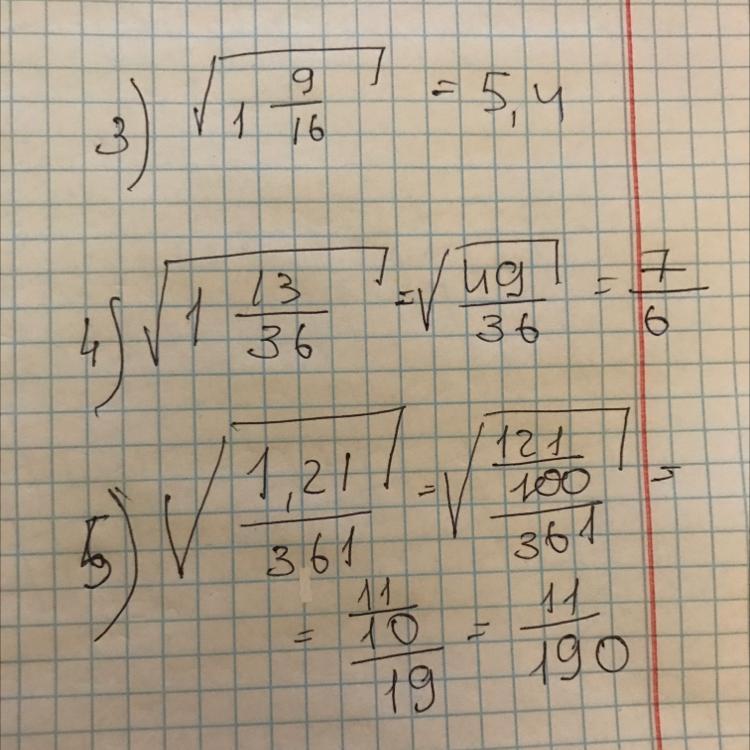 3) √(1 9/16) = 5,4
4) √(1 13/36) = √(49/36) = 7/6
5) √(1,21/361) = √((121/100)/361) =
= (11/10)/19 = 11/190